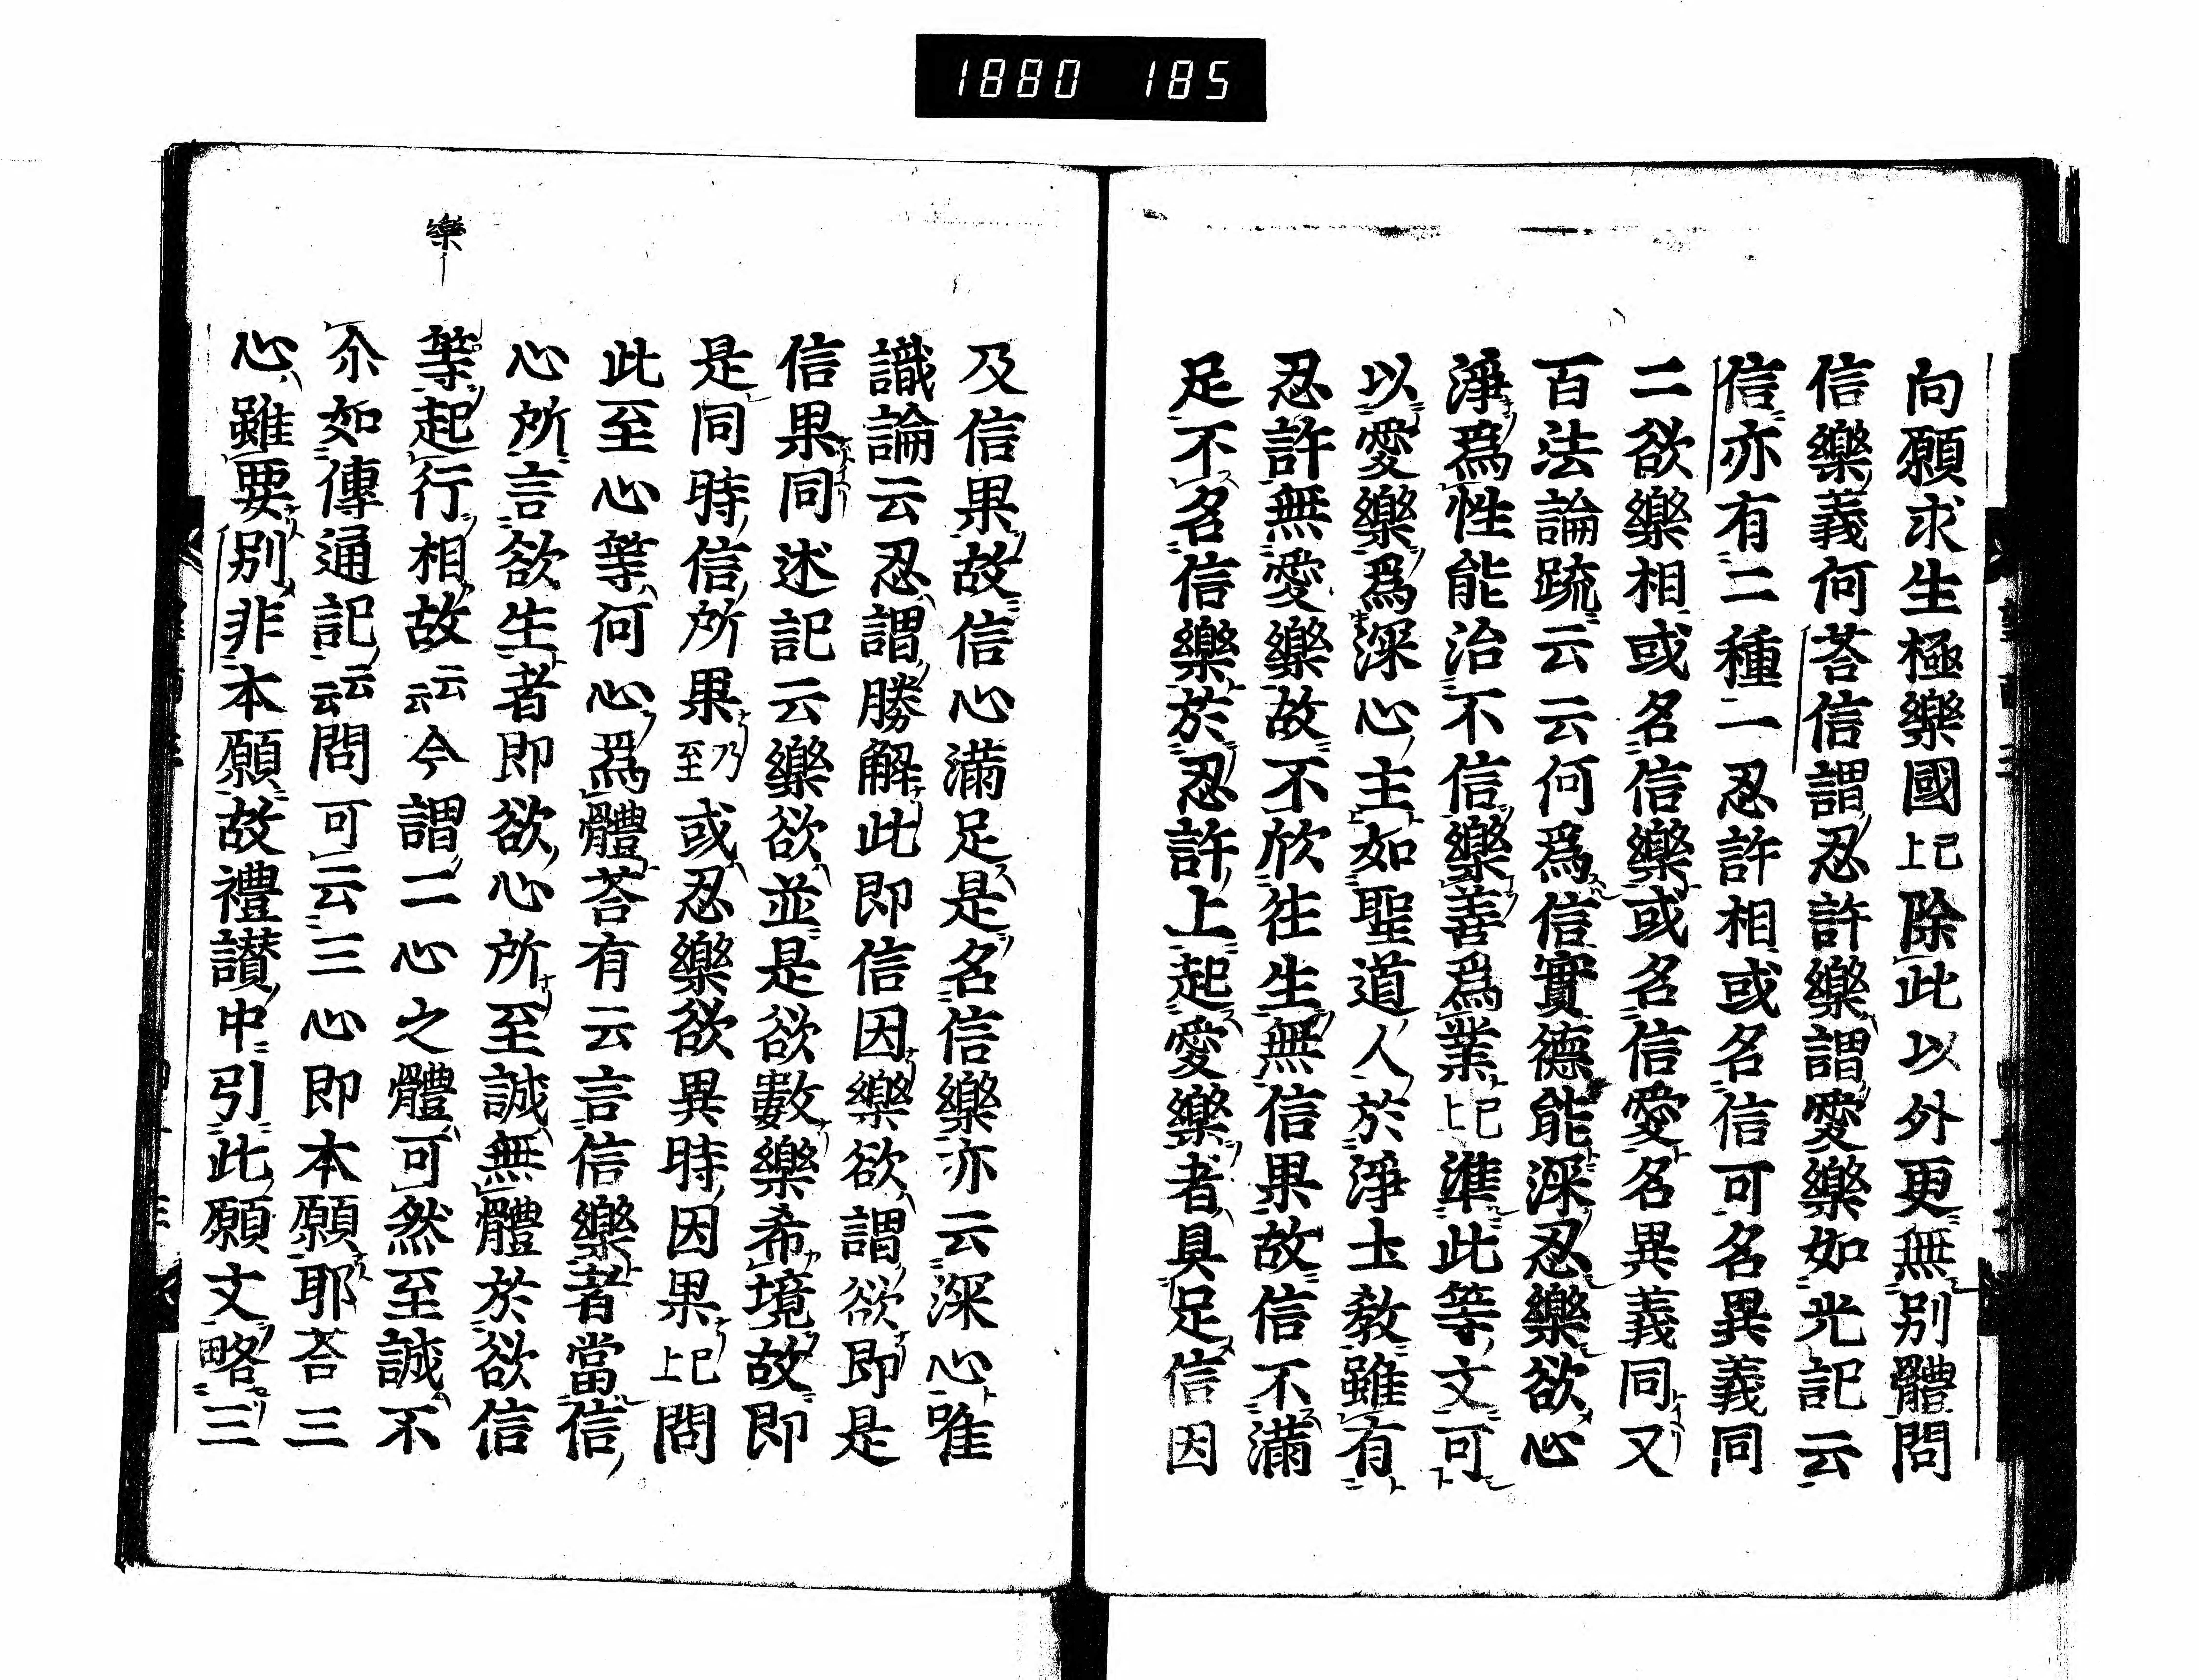 1880 185
向願求生極樂國已上除此以外更無別體問
信樂義何荅信謂忍許樂謂愛樂如光記云
信亦有二種一忍許相或名信可名異義同
二欲樂相或名信樂或名信愛名異義同又
百法論䟽云云何爲信實德能深忍樂欲心
淨爲性能治不信樂善爲業已上準此等文可
以愛樂爲深心主如聖道人於淨土教雖有
忍許無愛樂故不欣徃生無信果故信不滿
足不名信樂於忍許上起愛樂者具足信因
及信果故信心滿足是名信樂亦云深心唯
識論云忍謂勝解此即信因樂欲謂欲即是
信果同述記云樂欲並是欲數樂希境故即
是同時信所果乃至或忍樂欲異時因果已上問
此至心等何心爲體荅有云言信樂者當信
心所言欲生者即欲心所至誠無體於欲信
等起行相故云云今謂二心之體可然至誠不
樂
尒如傳通記云云問可云三心即本願耶荅三
心雖要別非本願故禮讃中引此願文略三